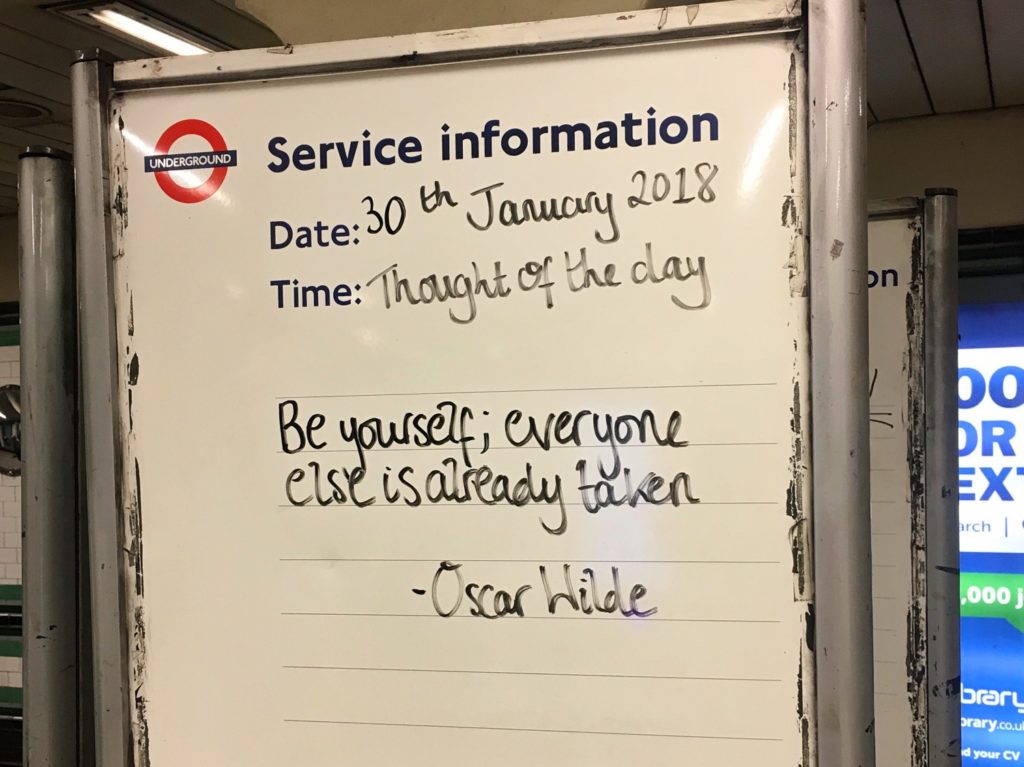 UNDERGROUND
Service information
Date: 30th January 2018
Time: Thought of the day
Be yourself; everyone
else is already taken
- Oscar Wilde
on
,000 j
brary
brary.co.u
d your CV